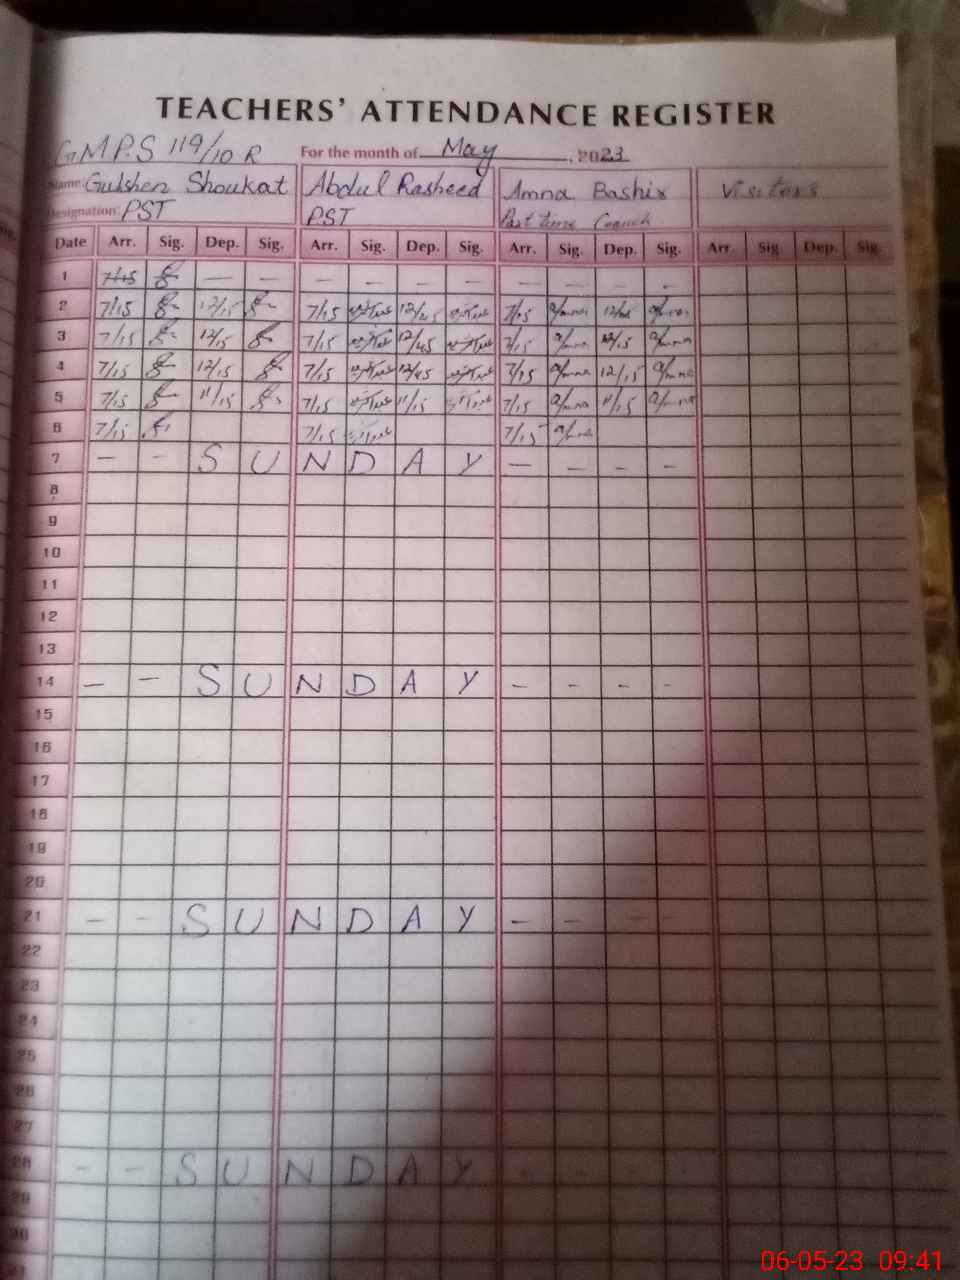 TEACHERS' ATTENDANCE REGISTER
G.M.P.S 119/10 R For the month of May, 2023
Name: Gulshen Shoukat Abdul Rasheed Amna Bashir Visitors
Designation: PST PST Part time Coach
Date Arr. Sig. Dep. Sig. Arr. Sig. Dep. Sig. Arr. Sig. Dep. Sig. Arr. Sig. Dep. Sig.
1 7/15 — — — — — — — — — —
2 7/15 12/15 7/15 12/45 7/15 Amna Amna
3 7/15 12/15 7/15 12/45 7/15 Amna 12/15 Amna
4 7/15 12/15 7/15 12/45 7/15 Amna 12/15 Amna
5 7/15 11/15 7/15 11/15 7/15 Amna 11/15 Amna
6 7/15 7/15 7/15 Amna
7 — — S U N D A Y — — — —
8
9
10
11
12
13
14 — — S U N D A Y — — — —
15
16
17
18
19
20
21 — — S U N D A Y — — — —
22
23
24
25
26
27
28 — — S U N D A Y — — — —
29
30
31
06-05-23 09:41